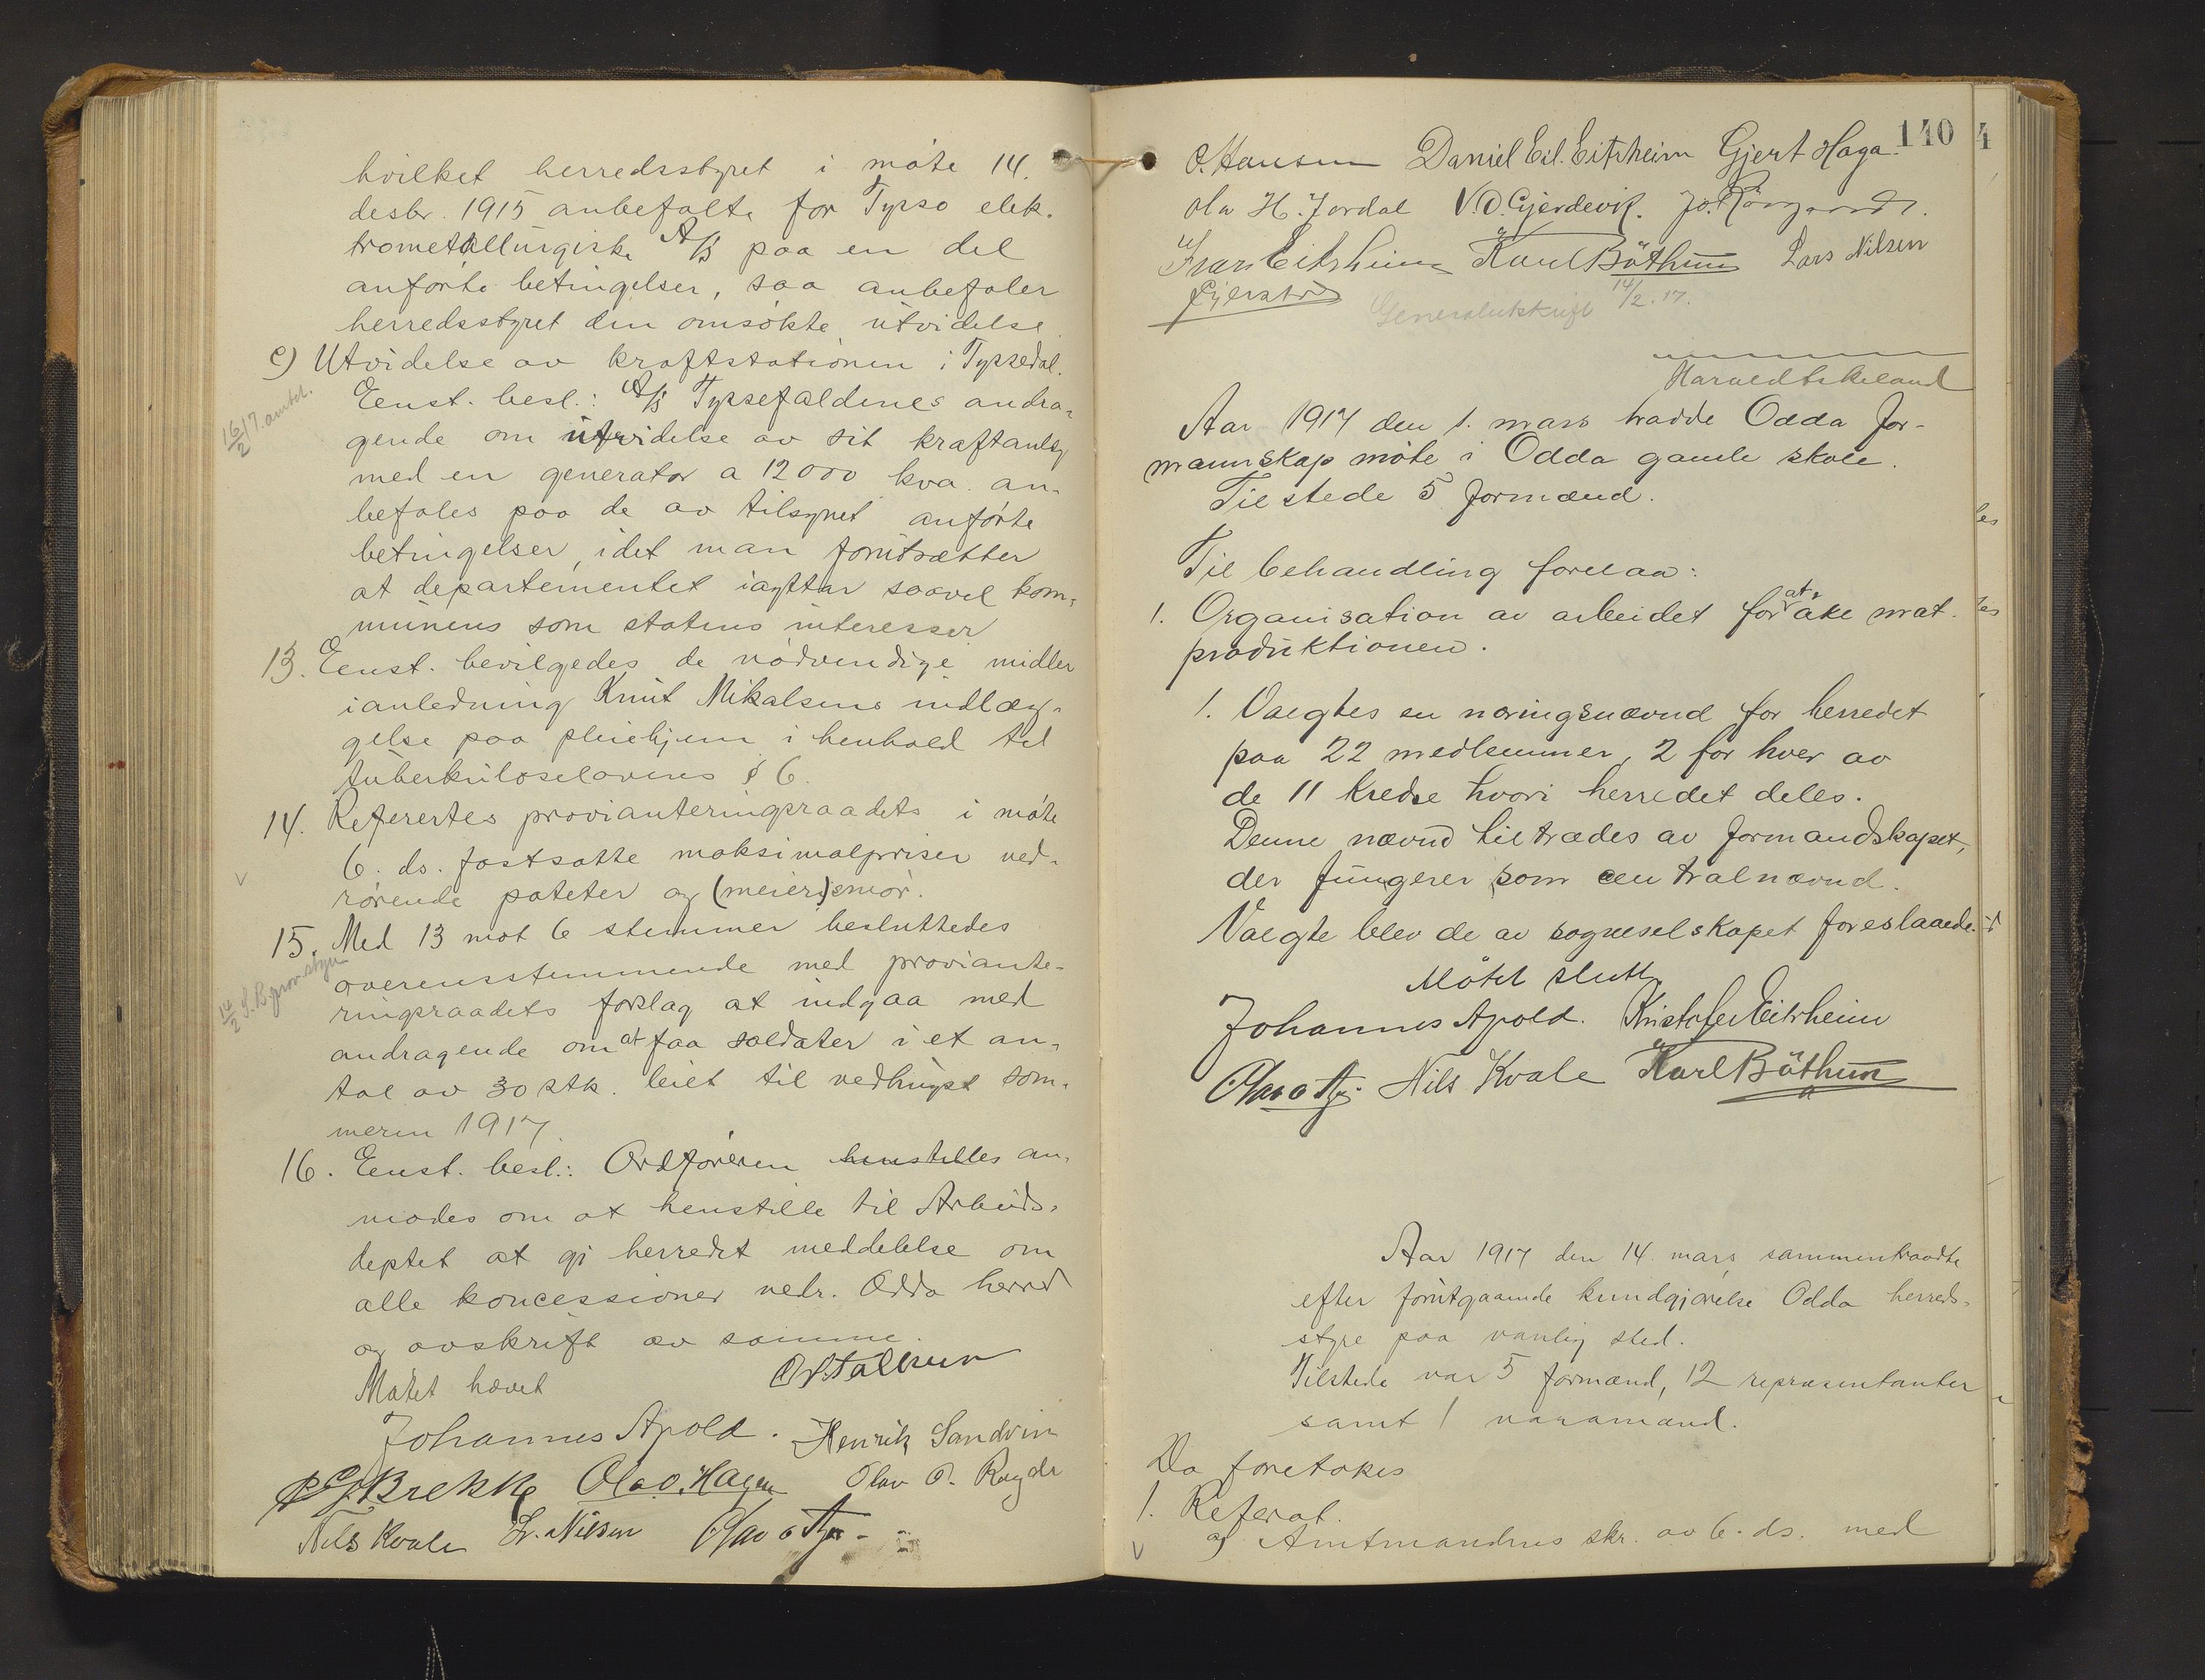 hvilket herredsstyret i møte 14.
desbr. 1915 anbefalte for Tysso elek-
trometallurgiske A/S paa en del
anførte betingelser, saa anbefaler
herredsstyret den omsøkte utvidelse.
c) Utvidelse av kraftstationen i Tyssedal.
16/2 17. amtet.
Eenst. besl.: A/S Tyssefaldenes andra-
gende om utvidelse av sit kraftanlæg
med en generator a 12000 kva. an-
befales paa de av tilsynet anførte
betingelser, idet man forutsætter
at departementet iagttar saavel kom-
munens som statens interesser.
13. Eenst. bevilgedes de nødvendige midler
ianledning Knut Mikalsens indlæg-
gelse paa pleiehjem i henhold til
tuberkuloselovens § 6.
14. Referertes provianteringsraadets i møte
6. ds. fastsatte maksimalpriser ved-
rørende poteter og (meieri)smør.
15. Med 13 mot 6 stemmer besluttedes
overensstemmende med proviante-
ringsraadets forslag at indgaa med
andragende om at faa soldater i et an-
tal av 30 stk. leiet til vedhugst som-
meren 1917.
16. Eenst. besl.: Ordføreren henstilles an-
modes om at henstille til Arbeids-
deptet at gi herredet meddelelse om
alle koncessioner vedr. Odda herred
og avskrift av samme.
Møtet hævet
Johannes Apold. Henrik Sandvin
Brekke Ola O. Hagen Olav O. Ragde
Nils Kvale L. Nilsen Olav
140
O. Hansen Daniel Eil. Eitrheim Gjert Haga
Ola H. Jordal N. O. Gjerdevik.
Ivar Eitrheim Karl Bøthun Lars Nilsen
Generalutskrift 14/2. 17.
Aar 1917 den 1. mars hadde Odda for-
mannskap møte i Odda gamle skole.
Tilstede 5 formænd.
Til behandling forelaa:
1. Organisation av arbeidet for at øke mat-
produktionen.
1. Valgtes en næringsnævnd for herredet
paa 22 medlemmer, 2 for hver av
de 11 kredse hvori herredet deles.
Denne nævnd tiltrædes av formandskapet,
der fungerer som centralnævnd.
Valgte blev de av sogneselskapet foreslaaede.
Møtet slutt.
Johannes Apold. Kristofer Eitrheim
Olav Nils Kvale Karl Bøthun
Aar 1917 den 14. mars sammentraadte
efter forutgaaende kundgjørelse Odda herreds-
styre paa vanlig sted.
Tilstede var 5 formænd, 12 repræsentanter
samt 1 varamand.
Da foretokes
1. Referat.
a) Amtmandens skr. av 6. ds. med